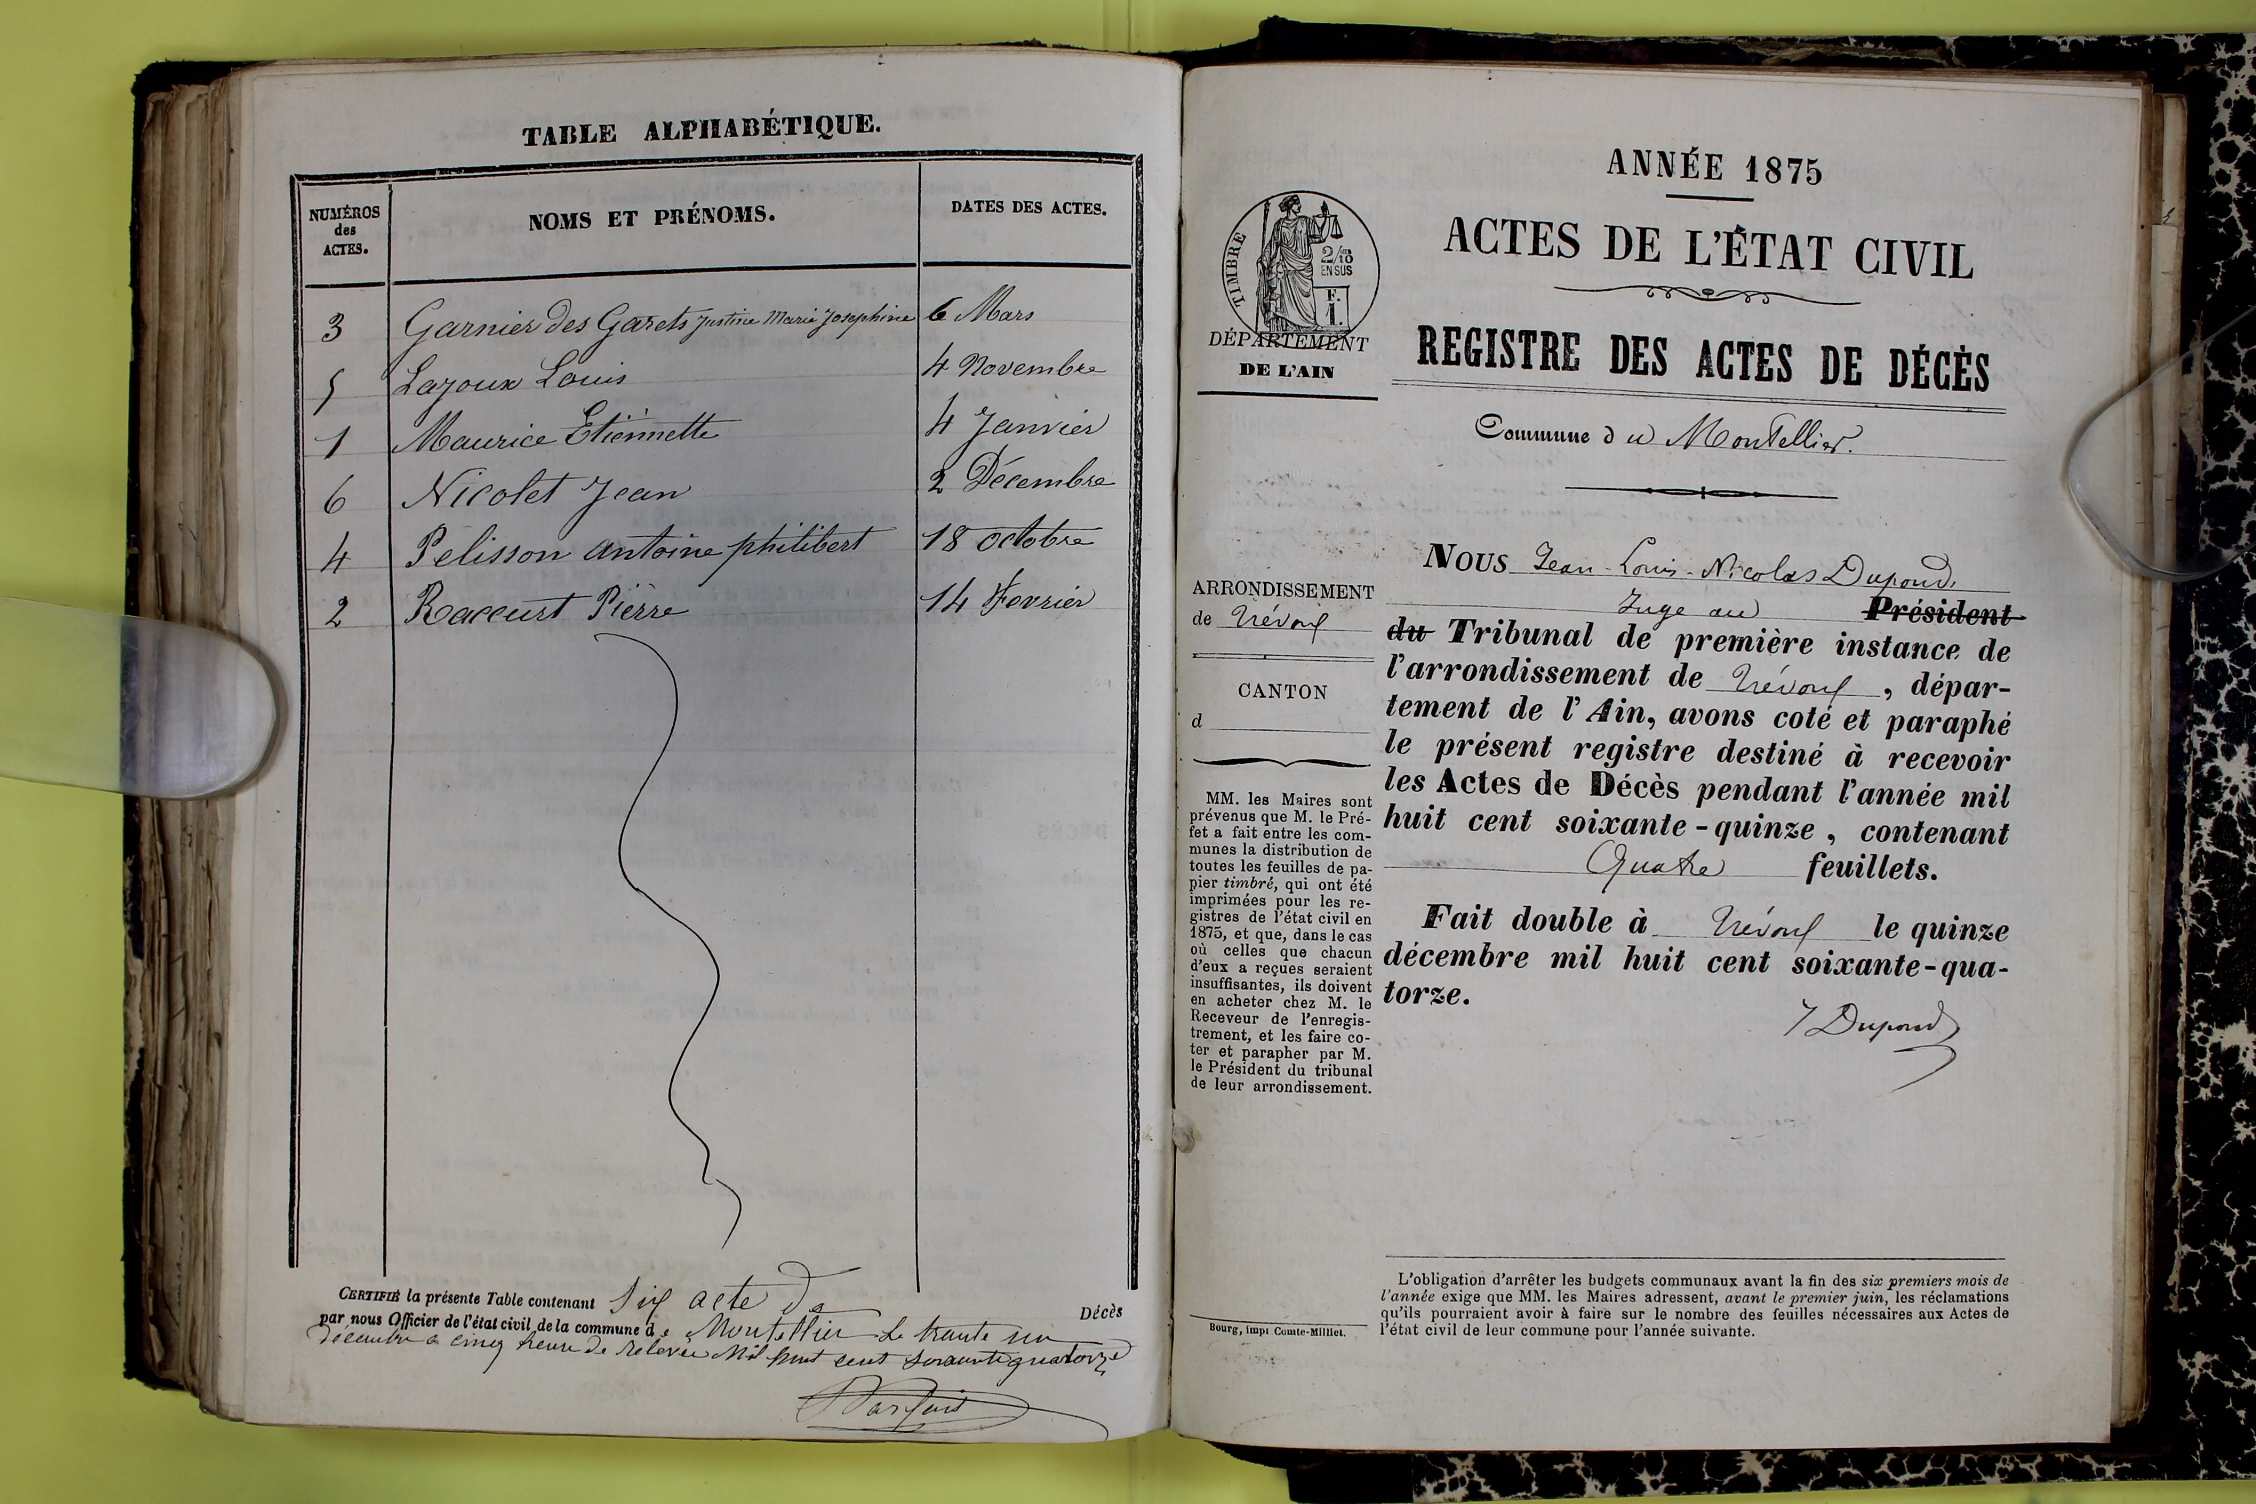 TABLE ALPHABÉTIQUE.
NUMÉROS des ACTES. NOMS ET PRÉNOMS. DATES DES ACTES.
3 Garnier des Garets Justine Marie Josephine 6 Mars
5 Lajoux Louis 4 Novembre
1 Maurice Etiennette 4 Janvier
6 Nicolet Jean 2 Décembre
4 Pelisson antoine philibert 18 octobre
2 Raccurt Pierre 14 Fevrier
CERTIFIÉ la présente Table contenant Six acte de Décès
par nous Officier de l'état civil de la commune d e Montellier Le trante un
décembre a cinq heure de relevée Mil huit cent soixante quatorze
ANNÉE 1875
ACTES DE L'ÉTAT CIVIL
REGISTRE DES ACTES DE DÉCÈS
Commune d u Montellier.
TIMBRE
2/10 EN SUS
F. 1.
DÉPARTEMENT
DE L'AIN
ARRONDISSEMENT
de Trévoux
CANTON
d
MM. les Maires sont
prévenus que M. le Pré-
fet a fait entre les com-
munes la distribution de
toutes les feuilles de pa-
pier timbré, qui ont été
imprimées pour les re-
gistres de l'état civil en
1875, et que, dans le cas
où celles que chacun
d'eux a reçues seraient
insuffisantes, ils doivent
en acheter chez M. le
Receveur de l'enregis-
trement, et les faire co-
ter et parapher par M.
le Président du tribunal
de leur arrondissement.
Bourg, impr Comte-Milliet.
NOUS Jean-Louis-Nicolas Dupond,
Juge au Président
du Tribunal de première instance de
l'arrondissement de Trévoux, dépar-
tement de l'Ain, avons coté et paraphé
le présent registre destiné à recevoir
les Actes de Décès pendant l'année mil
huit cent soixante-quinze, contenant
Quatre feuillets.
Fait double à Trévoux le quinze
décembre mil huit cent soixante-qua-
torze.
J Dupond
L'obligation d'arrêter les budgets communaux avant la fin des six premiers mois de
l'année exige que MM. les Maires adressent, avant le premier juin, les réclamations
qu'ils pourraient avoir à faire sur le nombre des feuilles nécessaires aux Actes de
l'état civil de leur commune pour l'année suivante.